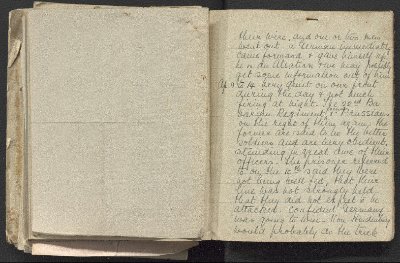 their wire, and one or two men
went out. a German immediately
came forward & gave himself up
he is an Alsatian & we may possibly
get some information out of him
to 14 very quiet on our front
during the day & not much
firing at night. The 20th Ba
varian Regiment, & Prussians
on the right of them again. The
former are said to be the better
soldiers and are very obedient,
standing in great awe of their
officers. The prisoner referred
to on the 10th said they were
not being well fed, that their
line was not strongly held
that they did not expect to be
attacked. Confident Germany
was going to win. Von Hindenburg
would probably do the trick